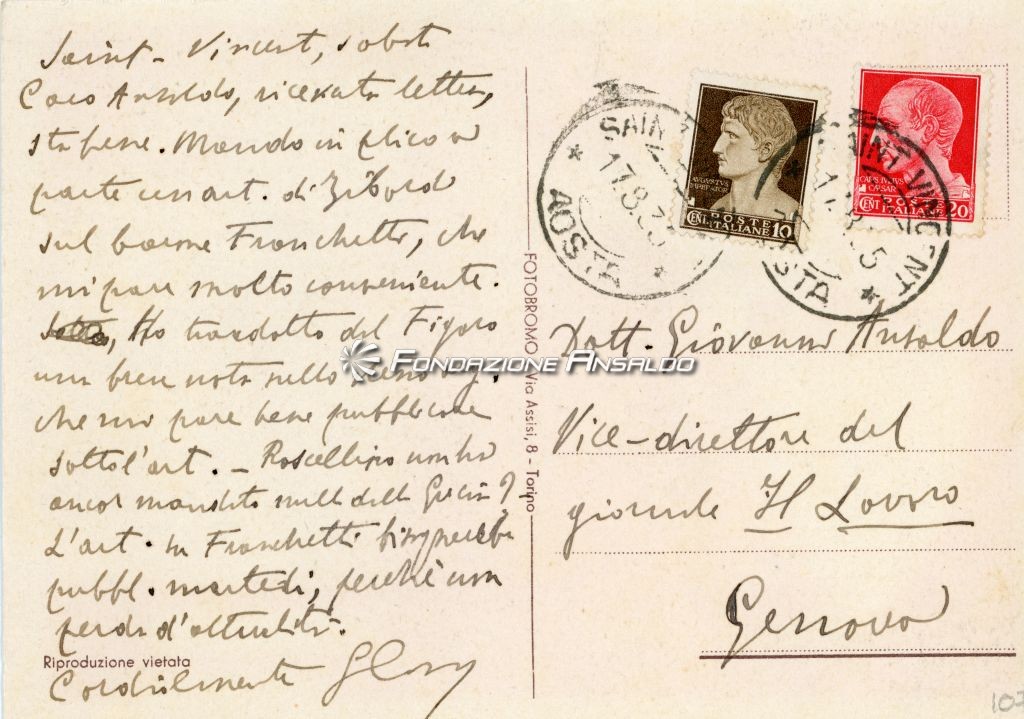 Saint-Vincent, sabato
Caro Ansaldo, ricevuta lettera,
sta bene. Mando in plico a
parte un art. di Zibordi
sul barone Franchetti, che
mi pare molto conveniente.
Ho tradotto dal Figaro
una breve nota sullo
che mi pare bene pubblicare
sotto l'art. - Roscellino non ha
ancor mandato nulla dalla Grecia?
L'art. su Franchetti bisognerebbe
pubbl. martedì, perché non
perda d'attualità.
Cordialmente
Riproduzione vietata
FOTOBROMO, Via Assisi, 8 - Torino
FONDAZIONE ANSALDO
SAINT
17.8.35
AOSTA
AUGUSTUS
IMPERATOR
POSTE
ITALIANE
CENT 10
CAES IULIUS
CAESAR
POSTE
ITALIANE
CENT 20
SAINT VINCENT
AOSTA
Dott. Giovanni Ansaldo
Vice-direttore del
giornale Il Lavoro
Genova